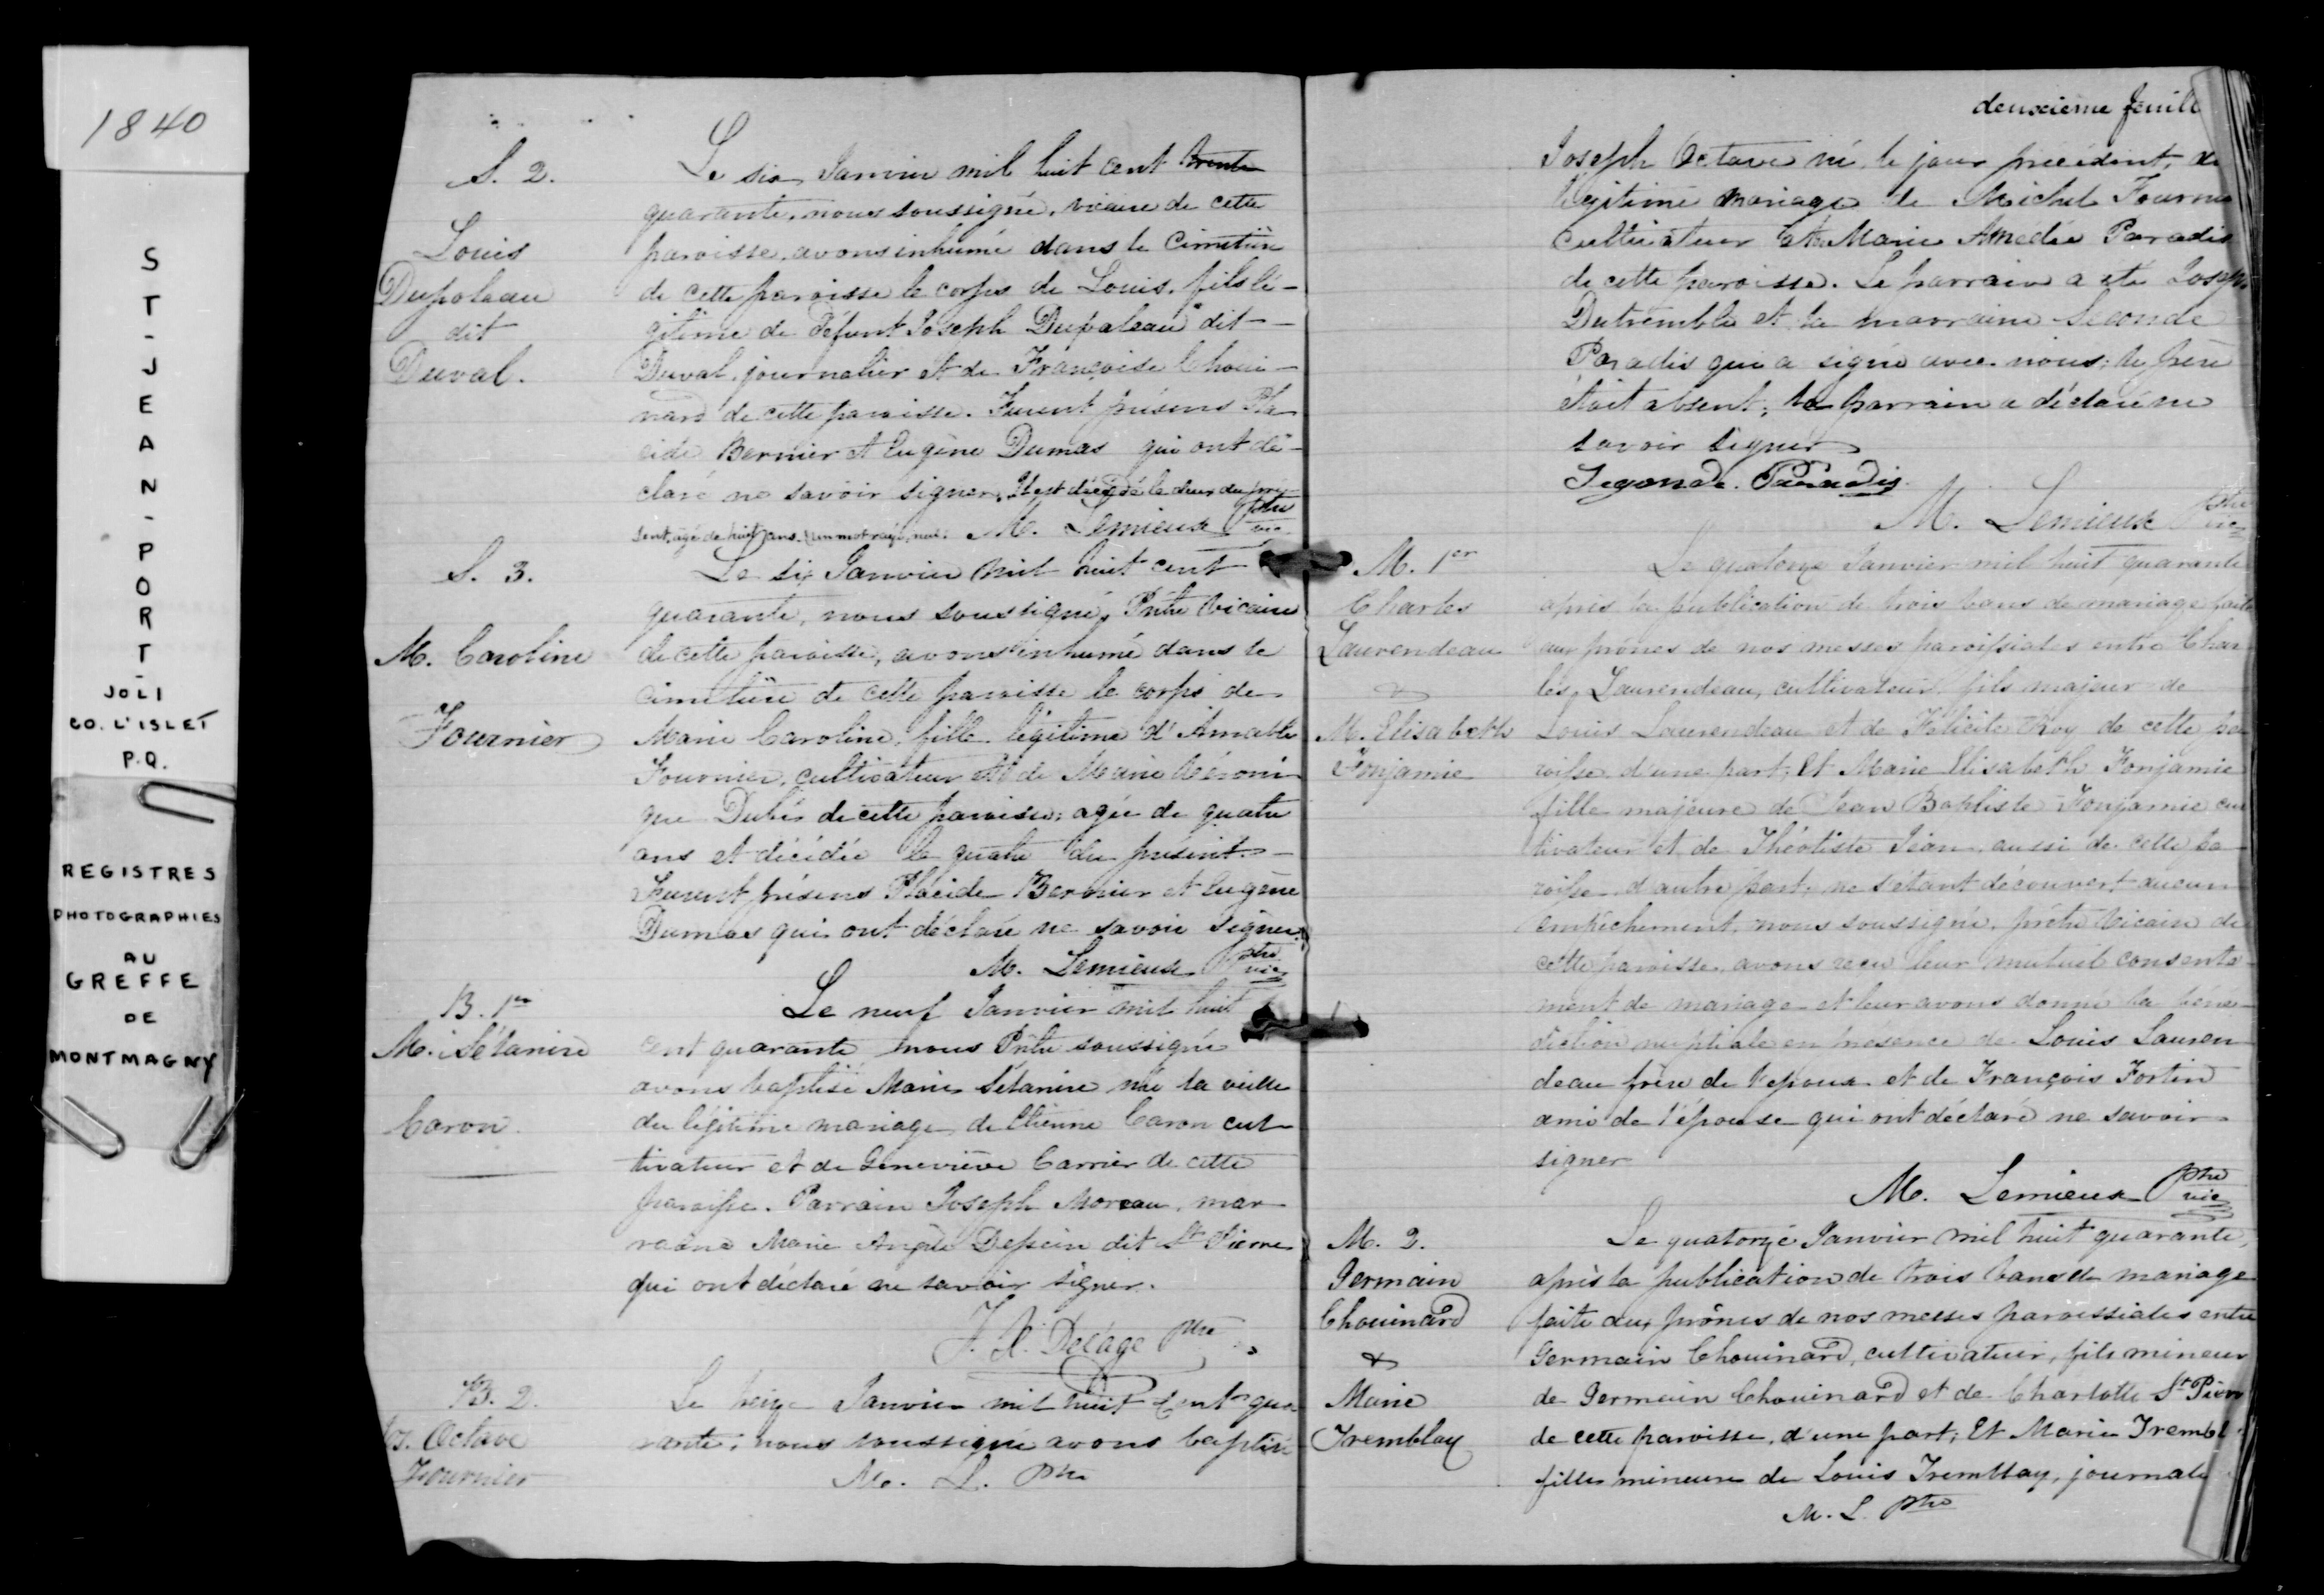 1840
ST-JEAN-PORT-
JOLI
CO. L'ISLET
P.Q.
REGISTRES
PHOTOGRAPHIES
AU
GREFFE
DE
MONTMAGNY
S. 2.
Louis
Dupoleau
dit
Duval.
Le six Janvier mil huit cent trente
quarante, nous soussigné, vicaire de cette
paroisse, avons inhumé dans le Cimetière
de cette paroisse le corps de Louis, fils lé-
gitime de défunt Joseph Dupaleau dit
Duval, journalier et de Françoise Choui-
nard de cette paroisse. Furent présens Pla
cide Bernier et Eugène Dumas qui ont dé-
claré ne savoir signer. Il est décédé le deux du pré-
sent, agé de huit ans. Un mot rayé, nul. M. Lemieux Ptre
vic
S. 3.
M. Caroline
Fournier
Le six Janvier mil huit cent
quarante, nous soussigné, Prêtre Vicaire
de cette paroisse, avons inhumé dans le
cimetière de cette paroisse le corps de
Marie Caroline, fille légitime d'Amable
Fournier, cultivateur et de Marie Véroni-
que Dubé de cette paroisse; agée de quatre
ans et décédée le quatre du présent.
Furent présens Placide Bernier et Eugène
Dumas qui ont déclaré ne savoir signer.
M. Lemieux Ptre
vic
B. 1er
M. Sétanire
Caron.
Le neuf Janvier mil huit
cent quarante nous Prêtre soussigné
avons baptisé Marie Sétanire née la veille
du légitime mariage de Etienne Caron cul-
tivateur et de Geneviève Carrier de cette
paroisse. Parrain Joseph Moreau, mar-
raine Marie Angèle Dessein dit St Pierre
qui ont déclaré ne savoir signer.
J. X. Delâge Ptre
B. 2.
Js. Octave
Fournier
Le treize Janvier mil huit cent qua-
rante, nous soussigné avons baptisé
M. L. Ptre
deuxième feuill
Joseph Octave né le jour précédent, du
légitime mariage de Michel Fournier
cultivateur et de Marie Amedée Paradis
de cette paroisse. Le parrain a été Joseph
Dutremble et la marraine Séconde
Paradis qui a signé avec nous; le père
était absent; le parrain a déclaré ne
savoir signer
Segonde Paradis
M. Lemieux Ptre
vic
M. 1er
Charles
Laurendeau
&
M. Elisabeth
Fonjamie
Le quatorze Janvier mil huit quarante
après la publication de trois bans de mariage faite
aux prônes de nos messes paroissiales entre Char
les Laurendeau, cultivateur, fils majeur de
Louis Laurendeau et de Félicité Roy de cette pa
roisse d'une part; Et Marie Elisabeth Fonjamie
fille majeure de Jean Baptiste Fonjamie cul
tivateur et de Théotiste Jean, aussi de cette pa
roisse d'autre part; ne s'étant découvert aucun
empêchement, nous soussigné, prêtre Vicaire de
cette paroisse, avons reçu leur mutuel consente-
ment de mariage et leur avons donné la béné-
diction nuptiale en présence de Louis Lauren
deau frère de l'epoux et de François Fortin
ami de l'épouse qui ont déclaré ne savoir
signer
M. Lemieux Ptre
vic
M. 2.
Germain
Chouinard
&
Marie
Tremblay
Le quatorze Janvier mil huit quarante,
après la publication de trois bans de mariage
faite aux prônes de nos messes paroissiales entre
Germain Chouinard, cultivateur, fils mineur
de Germain Chouinard et de Charlotte St Pierr
de cette paroisse, d'une part; Et Marie Trembl
fille mineure de Louis Tremblay, journali
M. L. Ptre